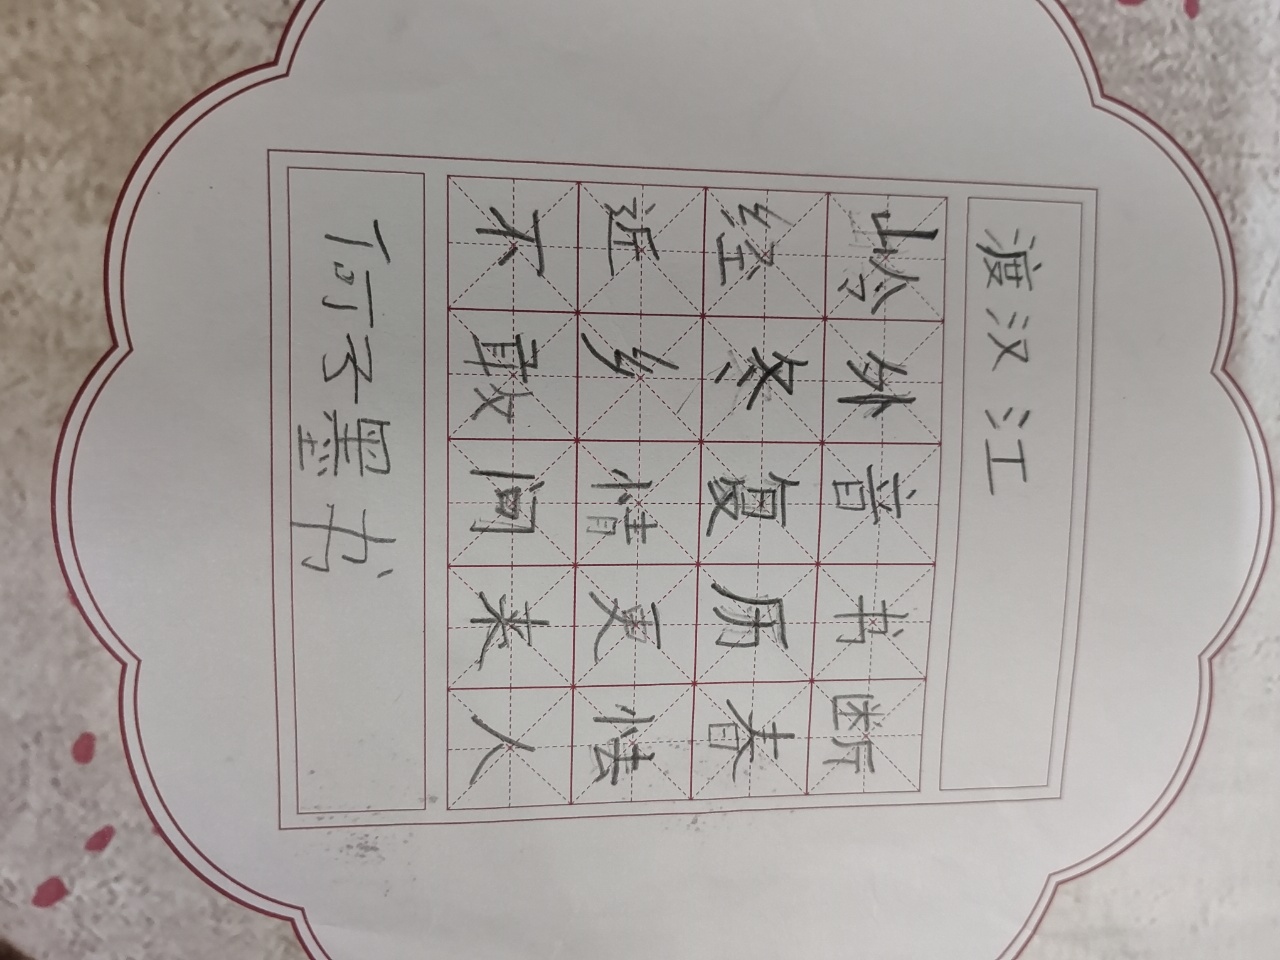 渡汉江
岭外音书断
经冬复历春
近乡情更怯
不敢问来人
何子墨书